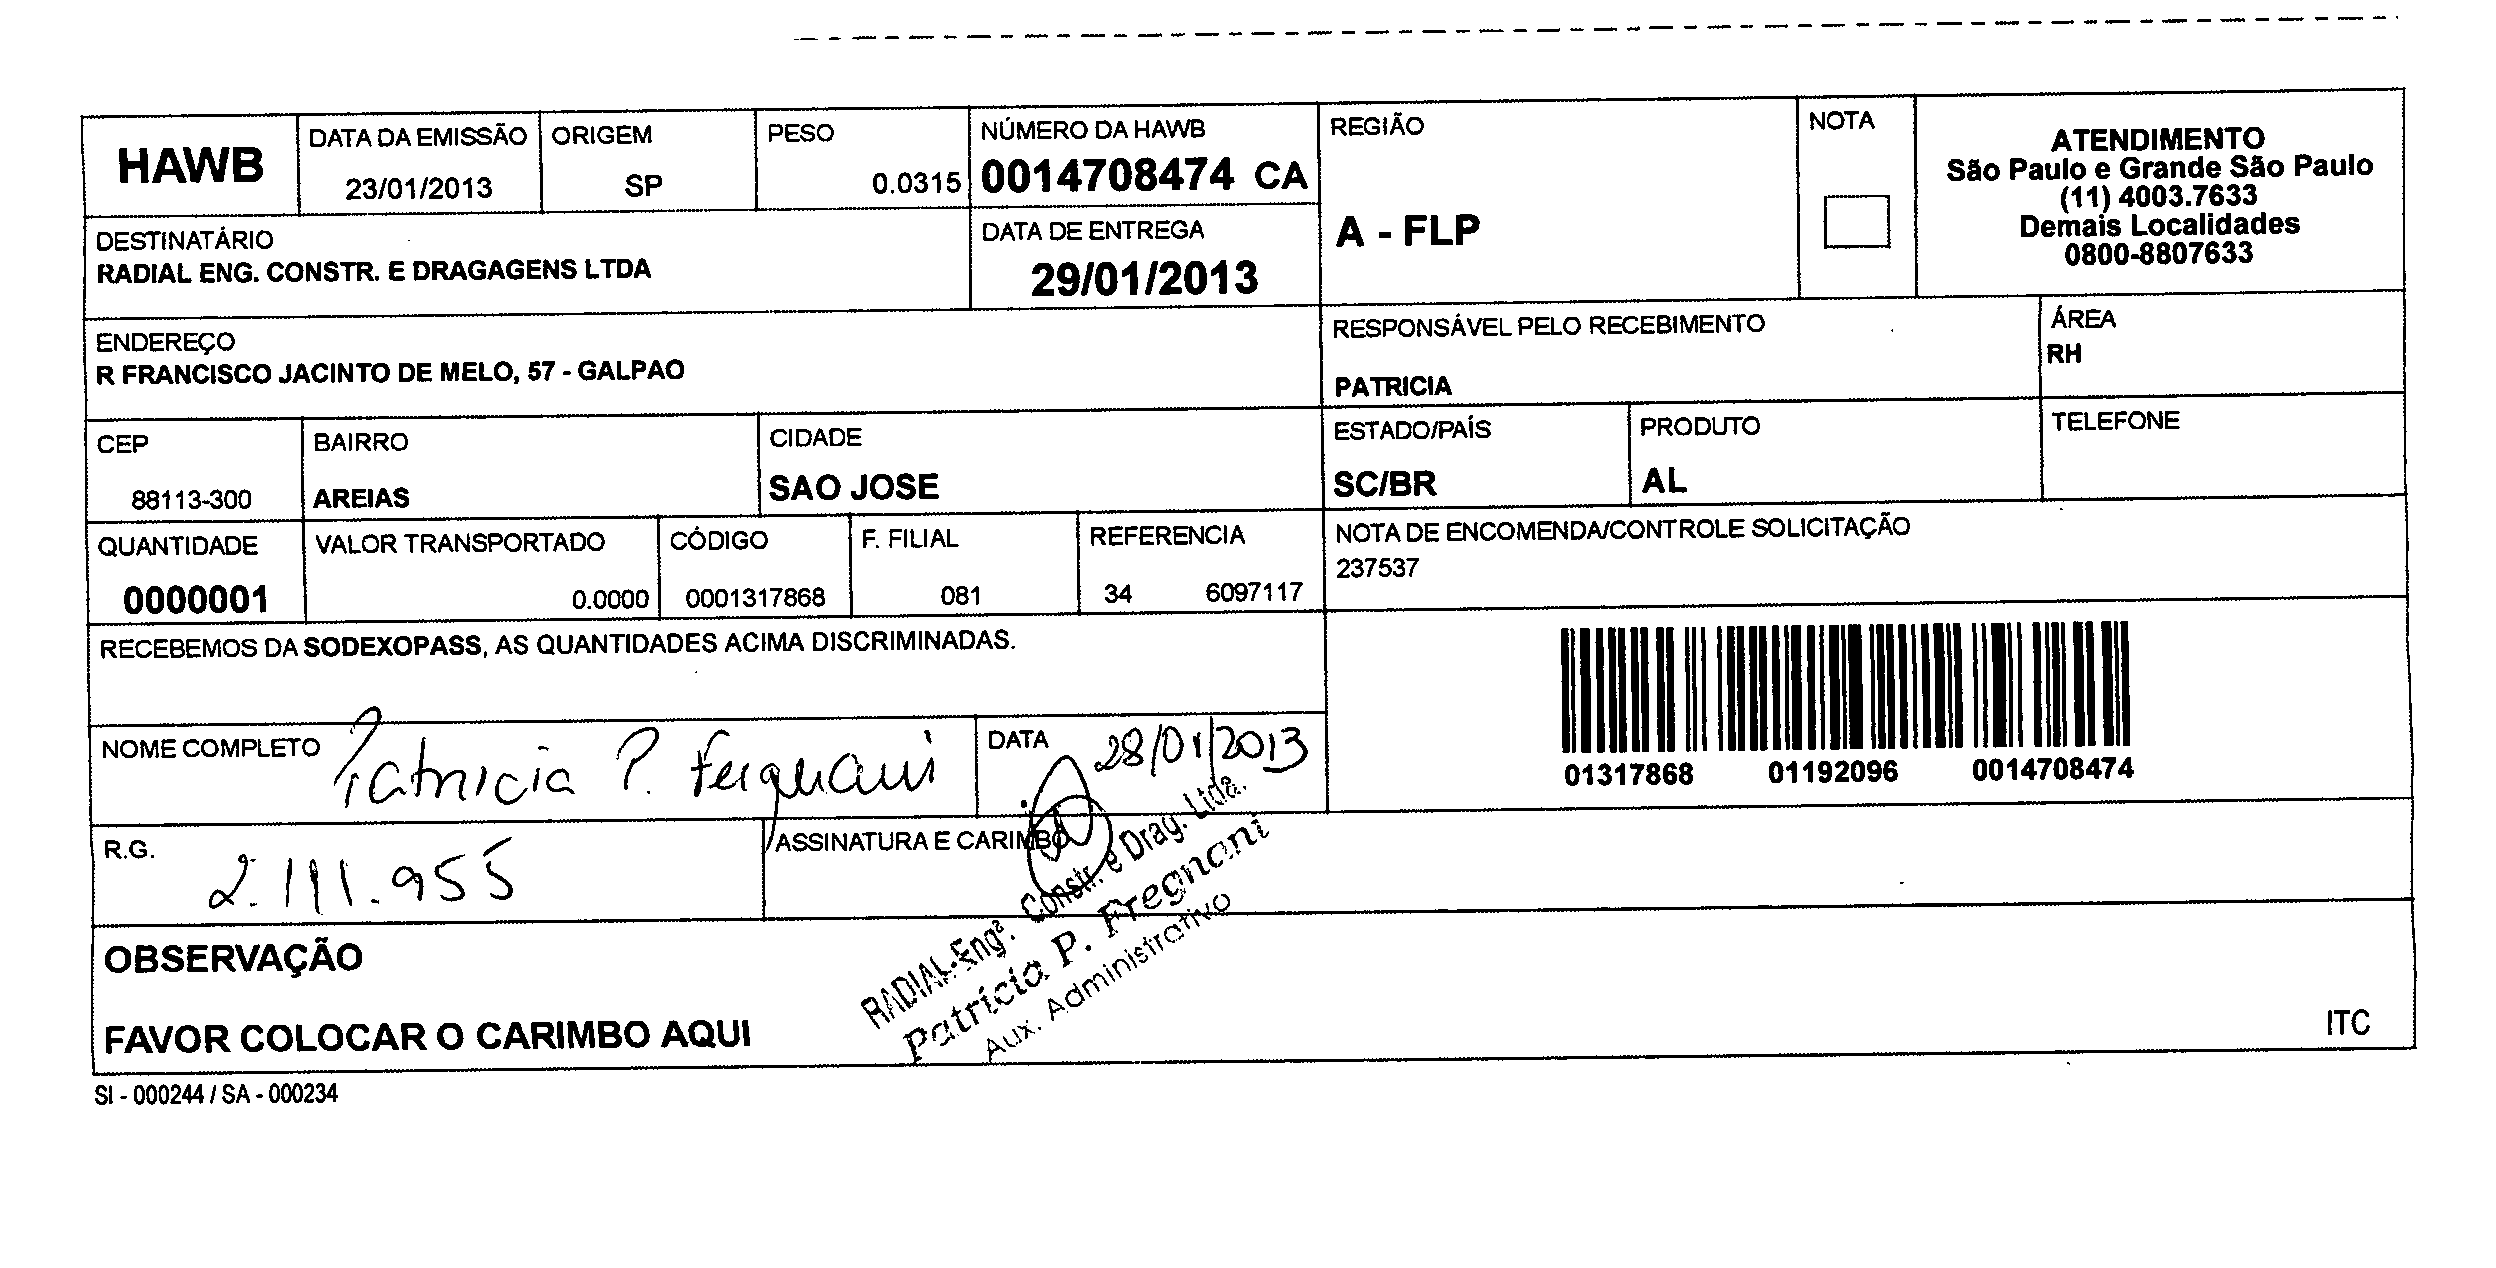 HAWB
DATA DA EMISSÃO
23/01/2013
ORIGEM
SP
PESO
0.0315
NÚMERO DA HAWB
0014708474 CA
REGIÃO
A - FLP
NOTA
ATENDIMENTO
São Paulo e Grande São Paulo
(11) 4003.7633
Demais Localidades
0800-8807633
DESTINATÁRIO
RADIAL ENG. CONSTR. E DRAGAGENS LTDA
DATA DE ENTREGA
29/01/2013
ENDEREÇO
R FRANCISCO JACINTO DE MELO, 57 - GALPAO
RESPONSÁVEL PELO RECEBIMENTO
PATRICIA
ÁREA
RH
CEP
88113-300
BAIRRO
AREIAS
CIDADE
SAO JOSE
ESTADO/PAÍS
SC/BR
PRODUTO
AL
TELEFONE
QUANTIDADE
0000001
VALOR TRANSPORTADO
0.0000
CÓDIGO
0001317868
F. FILIAL
081
REFERENCIA
34 6097117
NOTA DE ENCOMENDA/CONTROLE SOLICITAÇÃO
237537
RECEBEMOS DA SODEXOPASS, AS QUANTIDADES ACIMA DISCRIMINADAS.
01317868 01192096 0014708474
NOME COMPLETO
Patricia P. Fregnani
DATA
28/01/2013
R.G.
2.111.955
ASSINATURA E CARIMBO
RADIAL-Engª. Constr. e Drag. Ltda.
Patrícia P. Fregnani
Aux. Administrativo
OBSERVAÇÃO
FAVOR COLOCAR O CARIMBO AQUI
ITC
SI - 000244 / SA - 000234